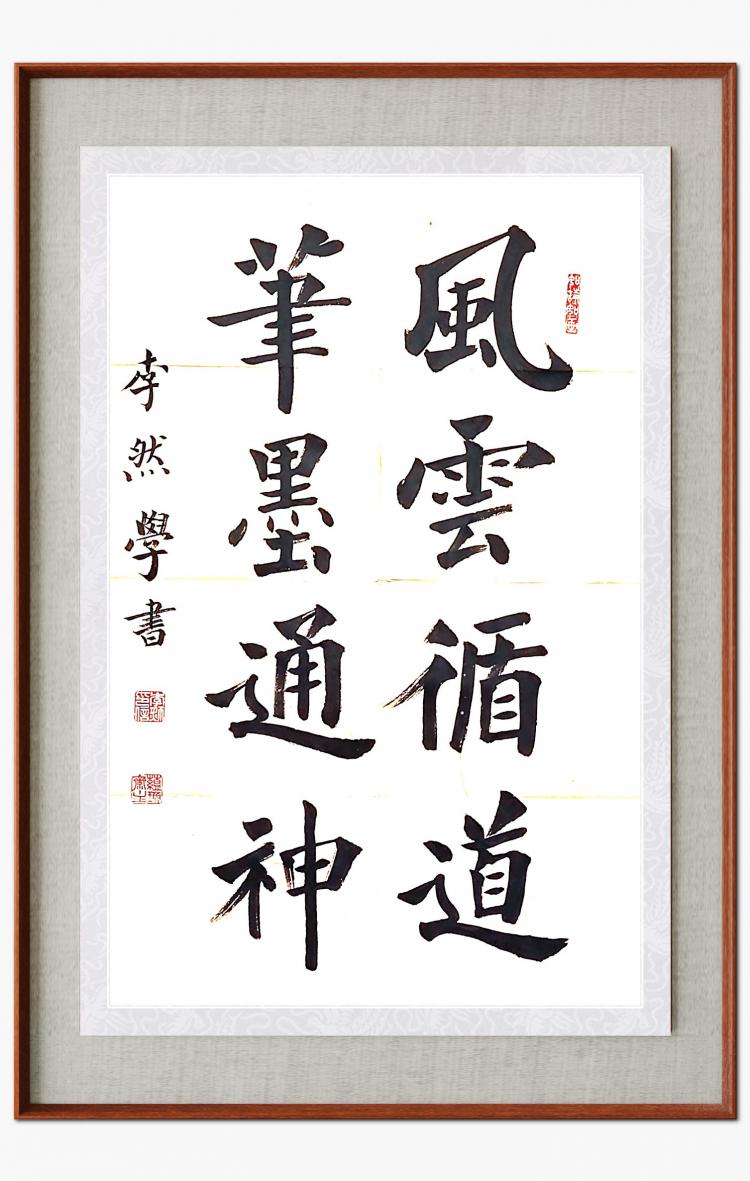 風雲循道
筆墨通神
李然學書